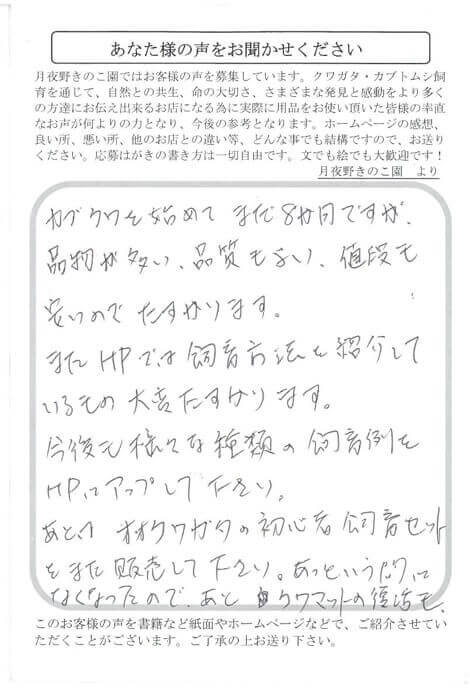 あなた様の声をお聞かせください
月夜野きのこ園ではお客様の声を募集しています。クワガタ・カブトムシ飼
育を通じて、自然との共生、命の大切さ、さまざまな発見と感動をより多く
の方達にお伝え出来るお店になる為に実際に用品をお使い頂いた皆様の率直
なお声が何よりの力となり、今後の参考となります。ホームページの感想、
良い所、悪い所、他のお店との違い等、どんな事でも結構ですので、お送り
ください。応募はがきの書き方は一切自由です。文でも絵でも大歓迎です！
月夜野きのこ園　より
カブクワを始めて まだ8か月ですが、
品物が多い、品質も良い、値段も
安いので たすかります。
またHPでは飼育方法を紹介して
いるもの大変たすかります。
今後も様々な種類の飼育例を
HPにアップして下さい。
あと、オオクワガタの初心者飼育セット
をまた販売して下さい。あっという間に
なくなったので、あと クワマットの復活も、
このお客様の声を書籍など紙面やホームページなどで、ご紹介させてい
ただくことがございます。ご了承の上お送り下さい。